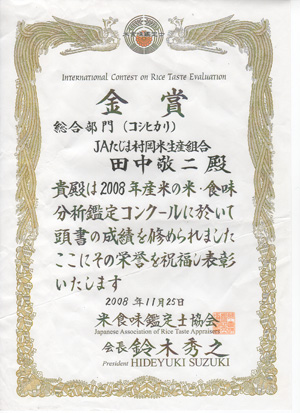 International Contest on Rice Taste Evaluation
金賞
総合部門 (コシヒカリ)
JAたじま村岡米生産組合
田中敬二殿
貴殿は2008年産米の米・食味
分析鑑定コンクールに於いて
頭書の成績を修められました
ここにその栄誉を祝福し表彰
いたします
2008年11月25日
米食味鑑定士協会
Japanese Association of Rice Taste Appraisers
会長 鈴木秀之
President HIDEYUKI SUZUKI